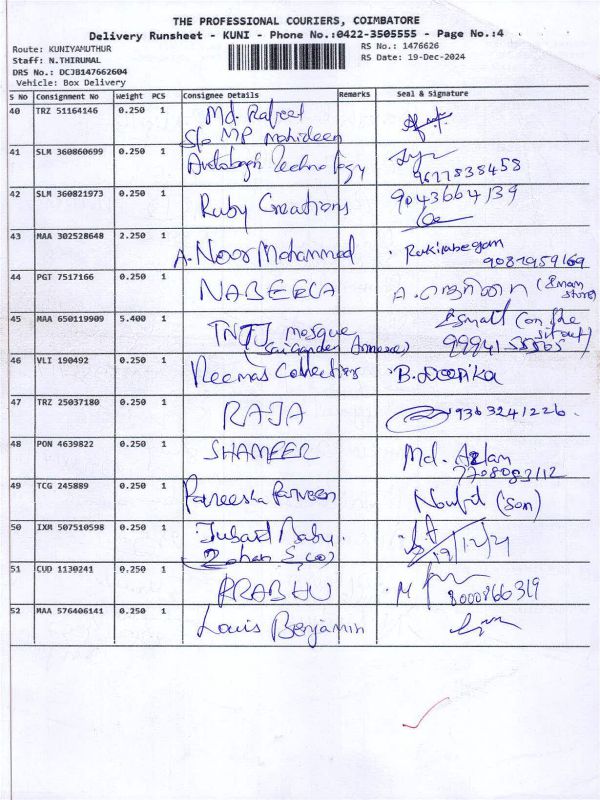 THE PROFESSIONAL COURIERS, COIMBATORE
Delivery Runsheet - KUNI - Phone No.:0422-3505555 - Page No.:4
Route: KUNIYAMUTHUR
RS No.: 1476626
Staff: N.THIRUMAL
RS Date: 19-Dec-2024
DRS No.: DCJB147662604
Vehicle: Box Delivery
S No Consignment No Weight PCS Consignee Details Remarks Seal & Signature
40 TRZ 51164146 0.250 1 Md. Rafeet
S/o MP Mohideen
41 SLM 360860699 0.250 1 Technology
9677838458
42 SLM 360821973 0.250 1 Ruby Creations 9043664139
43 MAA 302528648 2.250 1 A. Noor Mohammed Rakirabegam
9087959169
44 PGT 7517166 0.250 1 NABEELA A.
45 MAA 650119909 5.400 1 TNTJ mosque
46 VLI 190492 0.250 1 Neemas Collections B. Deepika
47 TRZ 25037180 0.250 1 RAJA 9363241226.
48 PON 4639822 0.250 1 SHAMEER Md. Azlam
7708083112
49 TCG 245889 0.250 1 Parveen (Son)
50 IXM 507510598 0.250 1 Babu.
19/12/24
51 CUD 1130241 0.250 1 PRABHU M
8000866319
52 MAA 576406141 0.250 1 Louis Benjamin